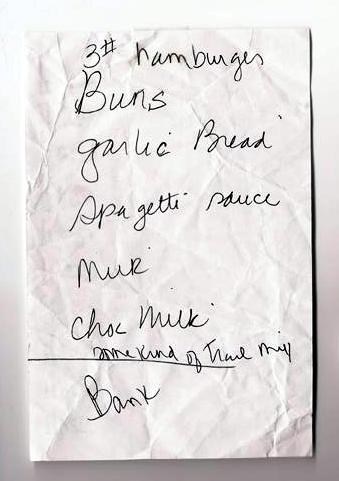 3# hamburger
Buns
garlic Bread
Spagetti sauce
Milk
Choc Milk
some kind of Trail Mix
Bank